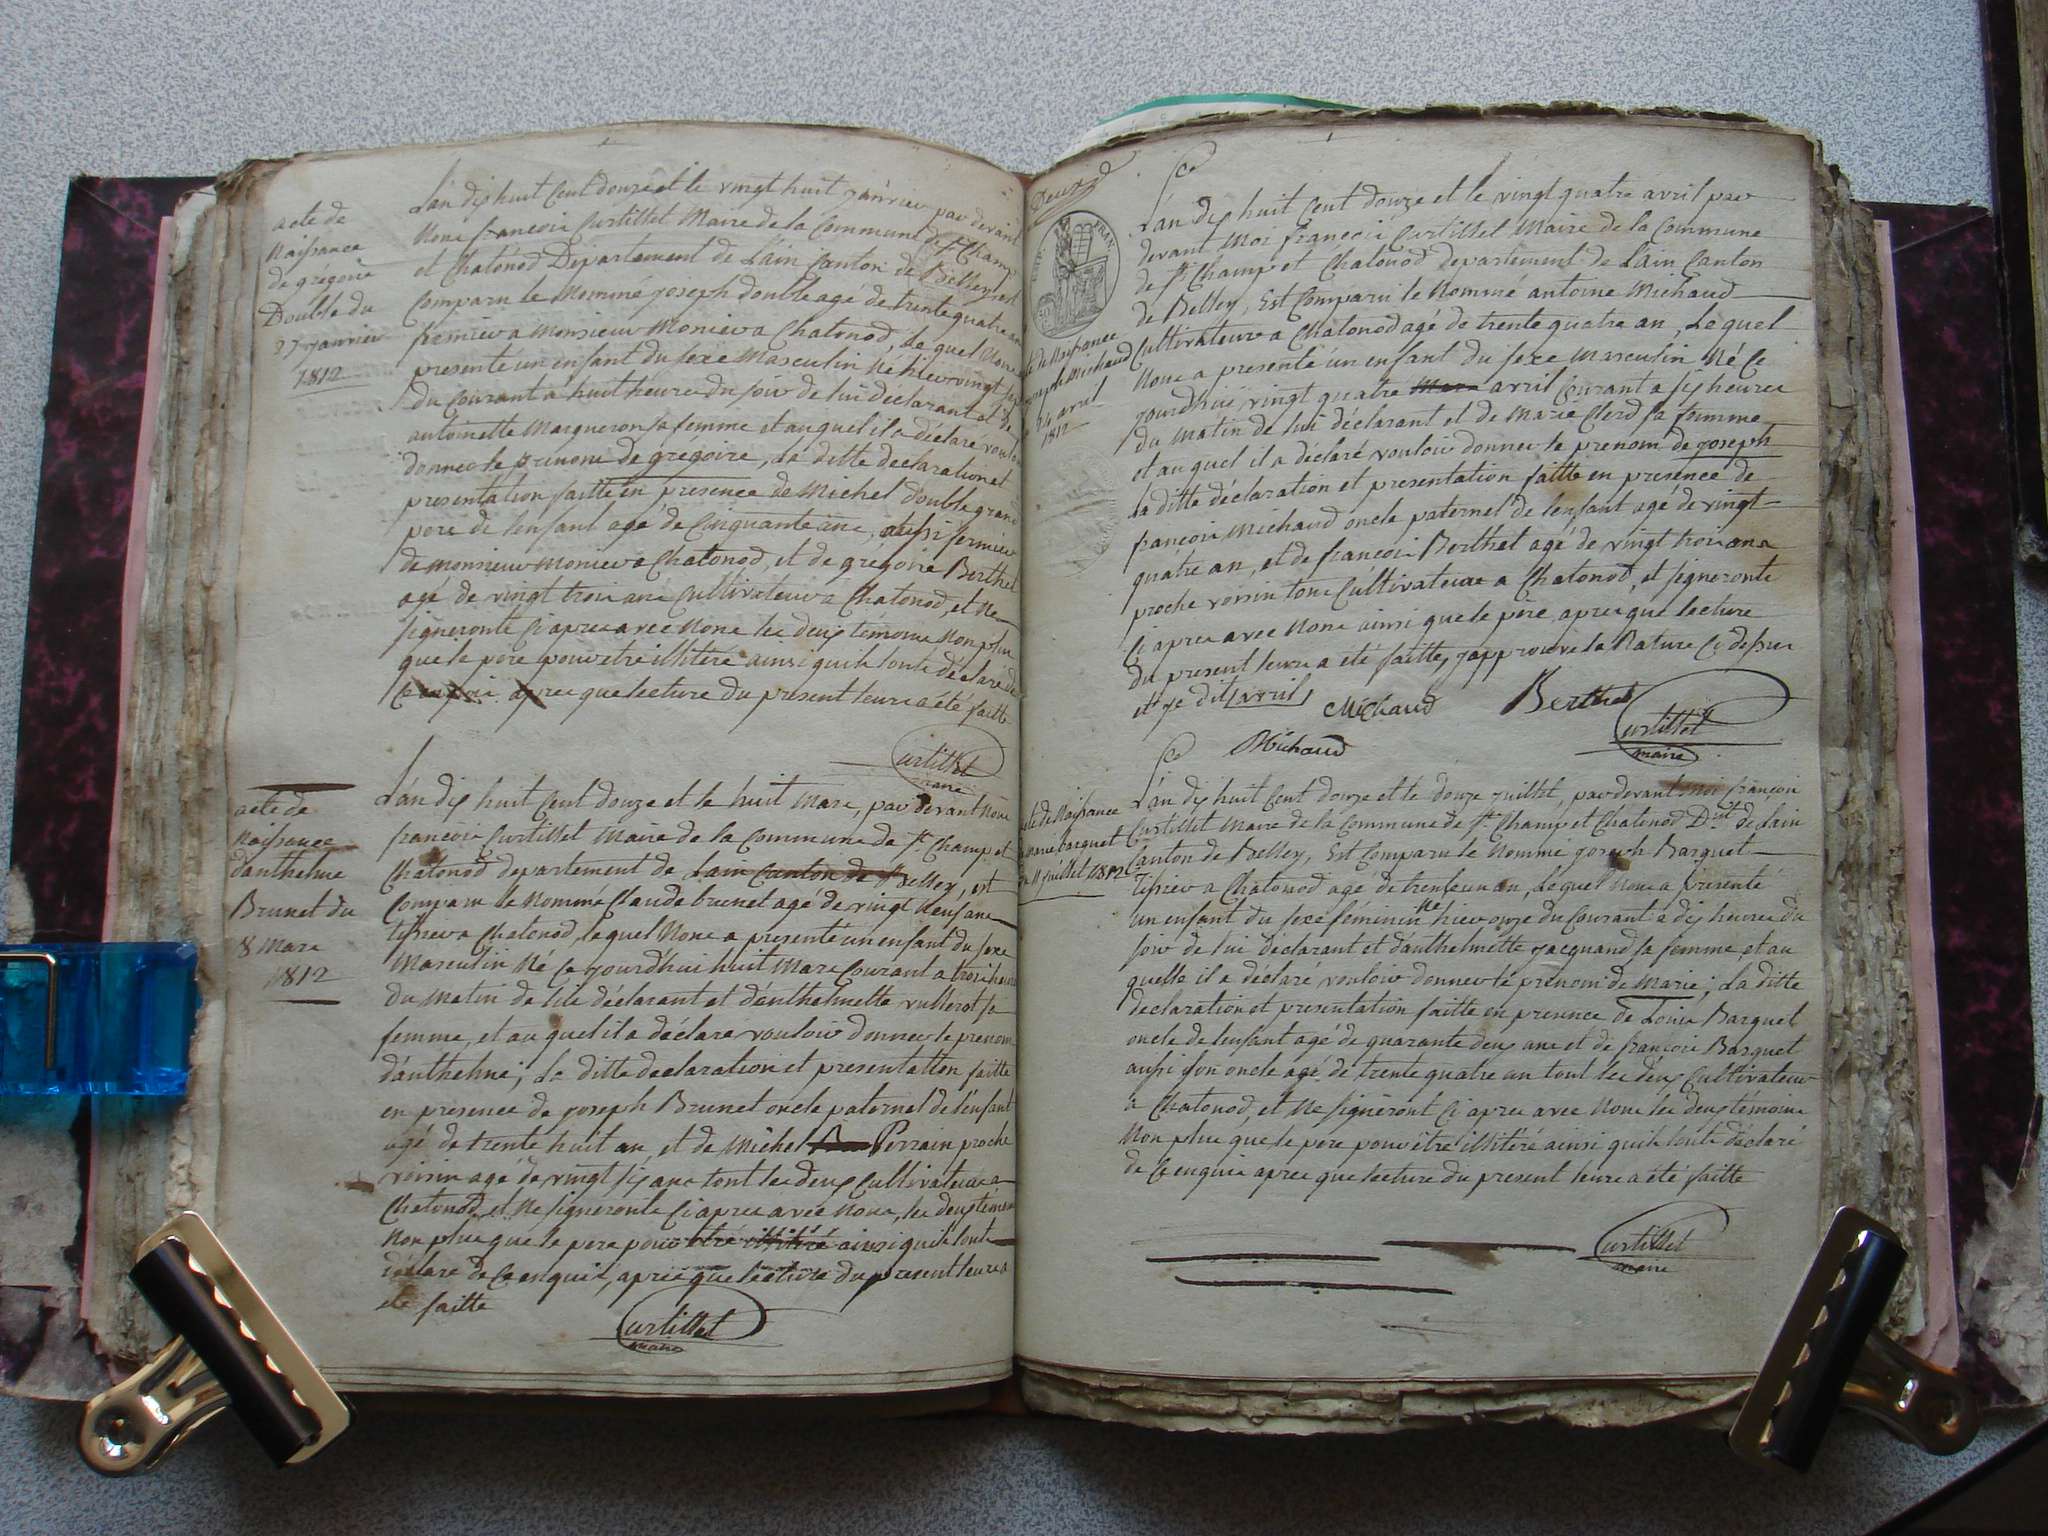 acte de
Naissance
de gregoire
Double du
27 janvier
1812
L'an dix huit Cent douze et le vingt huit janvier par devant
Nous françois Curtillet Maire de la Commune de St. Champ
et Chatonod Departement de Lain Canton de Belley est
Comparu le Nommé joseph double agé de trente quatre ans
fermier a Monsieur Monier a Chatonod, Le quel Nous a
presenté un enfant du sexe Masculin Né hier vingt sept
du Courant à huit heures du soir de lui déclarant et de
antoinette Marqueron sa femme et au quel il a déclaré vouloir
donner le prenom de grégoire, La ditte declaration et
presentation faitte en presence de Michel double grand
pere de l'enfant agé de Cinquante ans, aussi fermier
de Monsieur Monier a Chatonod, et de grégoire Berthet
agé de vingt trois ans Cultivateur a Chatonod, et Ne
signeronts Ci apres avec Nous les deux temoins Non plus
que le pere pour etre illitéré ainsi quils l'onts déclaré de
Ce enquis apres que lecture du present leurs a été faitte
Curtillet
maire
acte de
Naissance
d'anthelme
Brunet du
8 Mars
1812
L'an dix huit Cent douze et le huit Mars, par devant Nous
françois Curtillet Maire de la Commune de St. Champ et
Chatonod departement de Lain Canton de Belley, est
Comparu le Nommé Claude brunet agé de vingt Neuf ans
tissier a Chatonod, le quel Nous a presenté un enfant du sexe
Masculin Né Ce jourd'hui huit Mars Courant a trois heures
du Matin de lui déclarant et d'anthelmette vullerot sa
femme, et au quel il a déclaré vouloir donner le prenom
d'anthelme; La ditte declaration et presentation faitte
en presence de joseph Brunet oncle paternel de l'enfant
agé de trente huit an, et de Michel Perrain proche
voisin agé de vingt six ans tout les deux Cultivateurs a
Chatonod, et Ne signeronts Ci apres avec Nous, les deux témoins
Non plus que le pere pour etre illitéré ainsi quils l'onts
déclaré de Ce enquis, apres que lecture du present leurs a
été faitte
Curtillet
maire
Deux
FRAN
acte de Naissance
joseph Michaud
24 avril
1812
L'an dix huit Cent douze et le vingt quatre avril par
devant Moi françois Curtillet Maire de la Commune
de St. Champ et Chatonod departement de Lain Canton
de Belley, Est Comparu le Nommé antoine Michaud
Cultivateur a Chatonod agé de trente quatre an, Le quel
Nous a presenté un enfant du sexe Masculin Né Ce
jourd'hui vingt quatre Mars avril Courant a six heures
du Matin de lui déclarant et de Marie Clerd sa femme
et au quel il a déclaré vouloir donner le prenom de joseph
la ditte déclaration et presentation faitte en presence de
françois Michaud oncle paternel de l'enfant agé de vingt
quatre an, et de françois Berthet agé de vingt trois ans
proche voisin tous Cultivateurs a Chatonod, et signeronts
Ci apres avec Nous ainsi que le père, apres que lecture
du present leurs a été faitte, j'approuve la Rature Ci dessus
et je dit avril
Michaud
Berthet
Curtillet
maire
Michaud
acte de Naissance
marie barquet
du 11 juillet 1812
L'an dix huit Cent douze et le douze juillet, par devant moi françois
Curtillet Maire de la Commune de St. Champ et Chatonod D.mt de Lain
Canton de Belley, Est Comparu le Nommé joseph Barquet
Tissier a Chatonod agé de trente un an, Le quel Nous a présenté
un enfant du sexe féminin Né hier onze du Courant a dix heures du
soir de lui déclarant et d'anthelmette jacquand sa femme et au
quelle il a déclaré vouloir donner le prenom de Marie; La ditte
declaration et presentation faitte en presence de Louis Barquet
oncle de l'enfant agé de quarante deux ans et de françois Barquet
aussi son oncle agé de trente quatre an tout les deux Cultivateurs
a Chatonod, et Ne signeront Ci apres avec Nous les deux témoins
Non plus que le pere pour être illitéré ainsi quils l'onts déclaré
de Ce enquis apres que lecture du present leurs a été faitte
Curtillet
maire